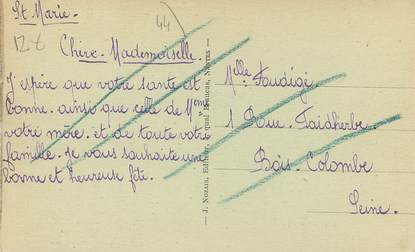 St Marie.
44
Chère. Mademoiselle.
J'espère que votre santé est
bonne. ainsi que celle de Mme
votre mère. et de toute votre
famille. je vous souhaite une
bonne et heureuse fête.
— J. Nozais, Editeur, quai Nantes —
Melle
1 Rue. Faidherbe.
Bois. Colombe
Seine.